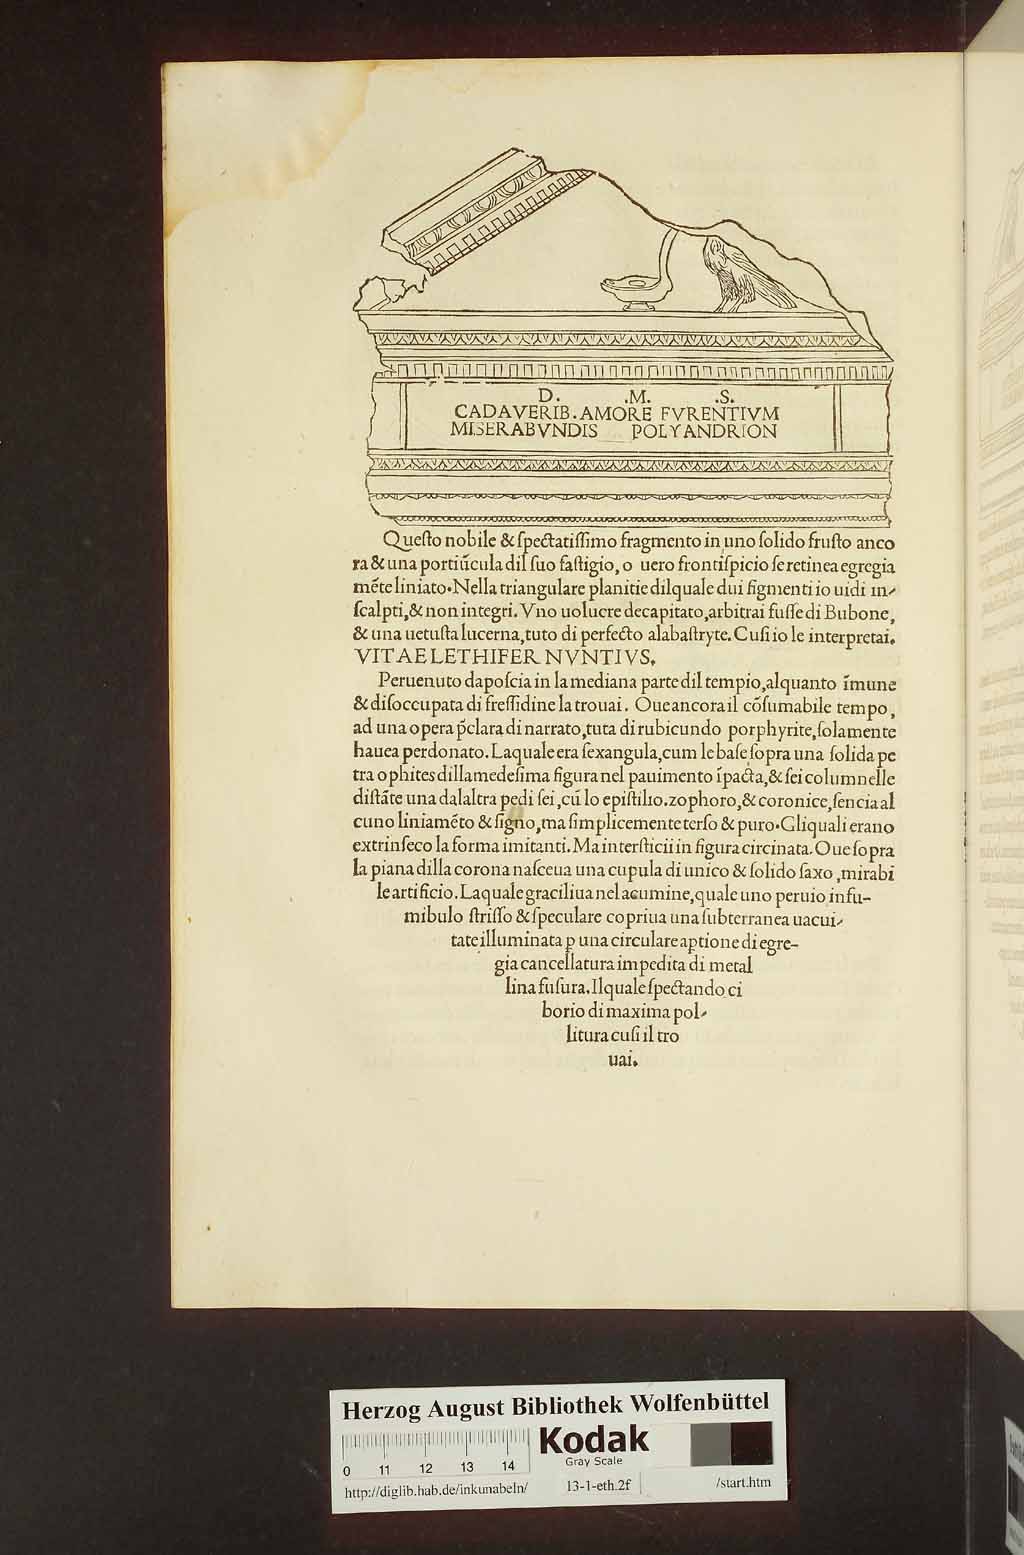 D. .M. .S.
CADAVERIB. AMORE FVRENTIVM
MISERABVNDIS POLYANDRION
Queſto nobile & ſpectatiſſimo fragmento in uno ſolido fruſto anco
ra & una portiũcula dil ſuo faſtigio, o uero frontiſpicio ſe retinea egregia
mẽte liniato. Nella triangulare planitie dilquale dui figmenti io uidi in-
ſcalpti, & non integri. Vno uolucre decapitato, arbitrai fuſſe di Bubone,
& una uetuſta lucerna, tuto di perfecto alabaſtryte. Cuſi io le interpretai.
VITAE LETHIFER NVNTIVS.
Peruenuto dapoſcia in la mediana parte dil tempio, alquanto ĩmune
& diſoccupata di freſſidine la trouai. Oue ancora il cõſumabile tempo,
ad una opera p̃clara di narrato, tuta di rubicundo porphyrite, ſolamente
hauea perdonato. Laquale era ſexangula, cum le baſe ſopra una ſolida pe
tra ophites dilla medeſima figura nel pauimento ĩpacta, & ſei columnelle
diſtãte una dalaltra pedi ſei, cũ lo epiſtilio. zophoro, & coronice, ſencia al
cuno liniamẽto & ſigno, ma ſimplicemente terſo & puro. Gliquali erano
extrinſeco la forma imitanti. Ma interſticii in figura circinata. Oue ſopra
la piana dilla corona naſceua una cupula di unico & ſolido ſaxo, mirabi
le artificio. Laquale graciliua nel acumine, quale uno peruio infu-
mibulo ſtriſſo & ſpeculare copriua una ſubterranea uacui-
tate illuminata ꝑ una circulare aptione di egre-
gia cancellatura impedita di metal
lina fuſura. Ilquale ſpectando ci
borio di maxima pol-
litura cuſi il tro
uai.
Herzog August Bibliothek Wolfenbüttel
Kodak
Gray Scale
0 11 12 13 14
http://diglib.hab.de/inkunabeln/ 13-1-eth.2f /start.htm